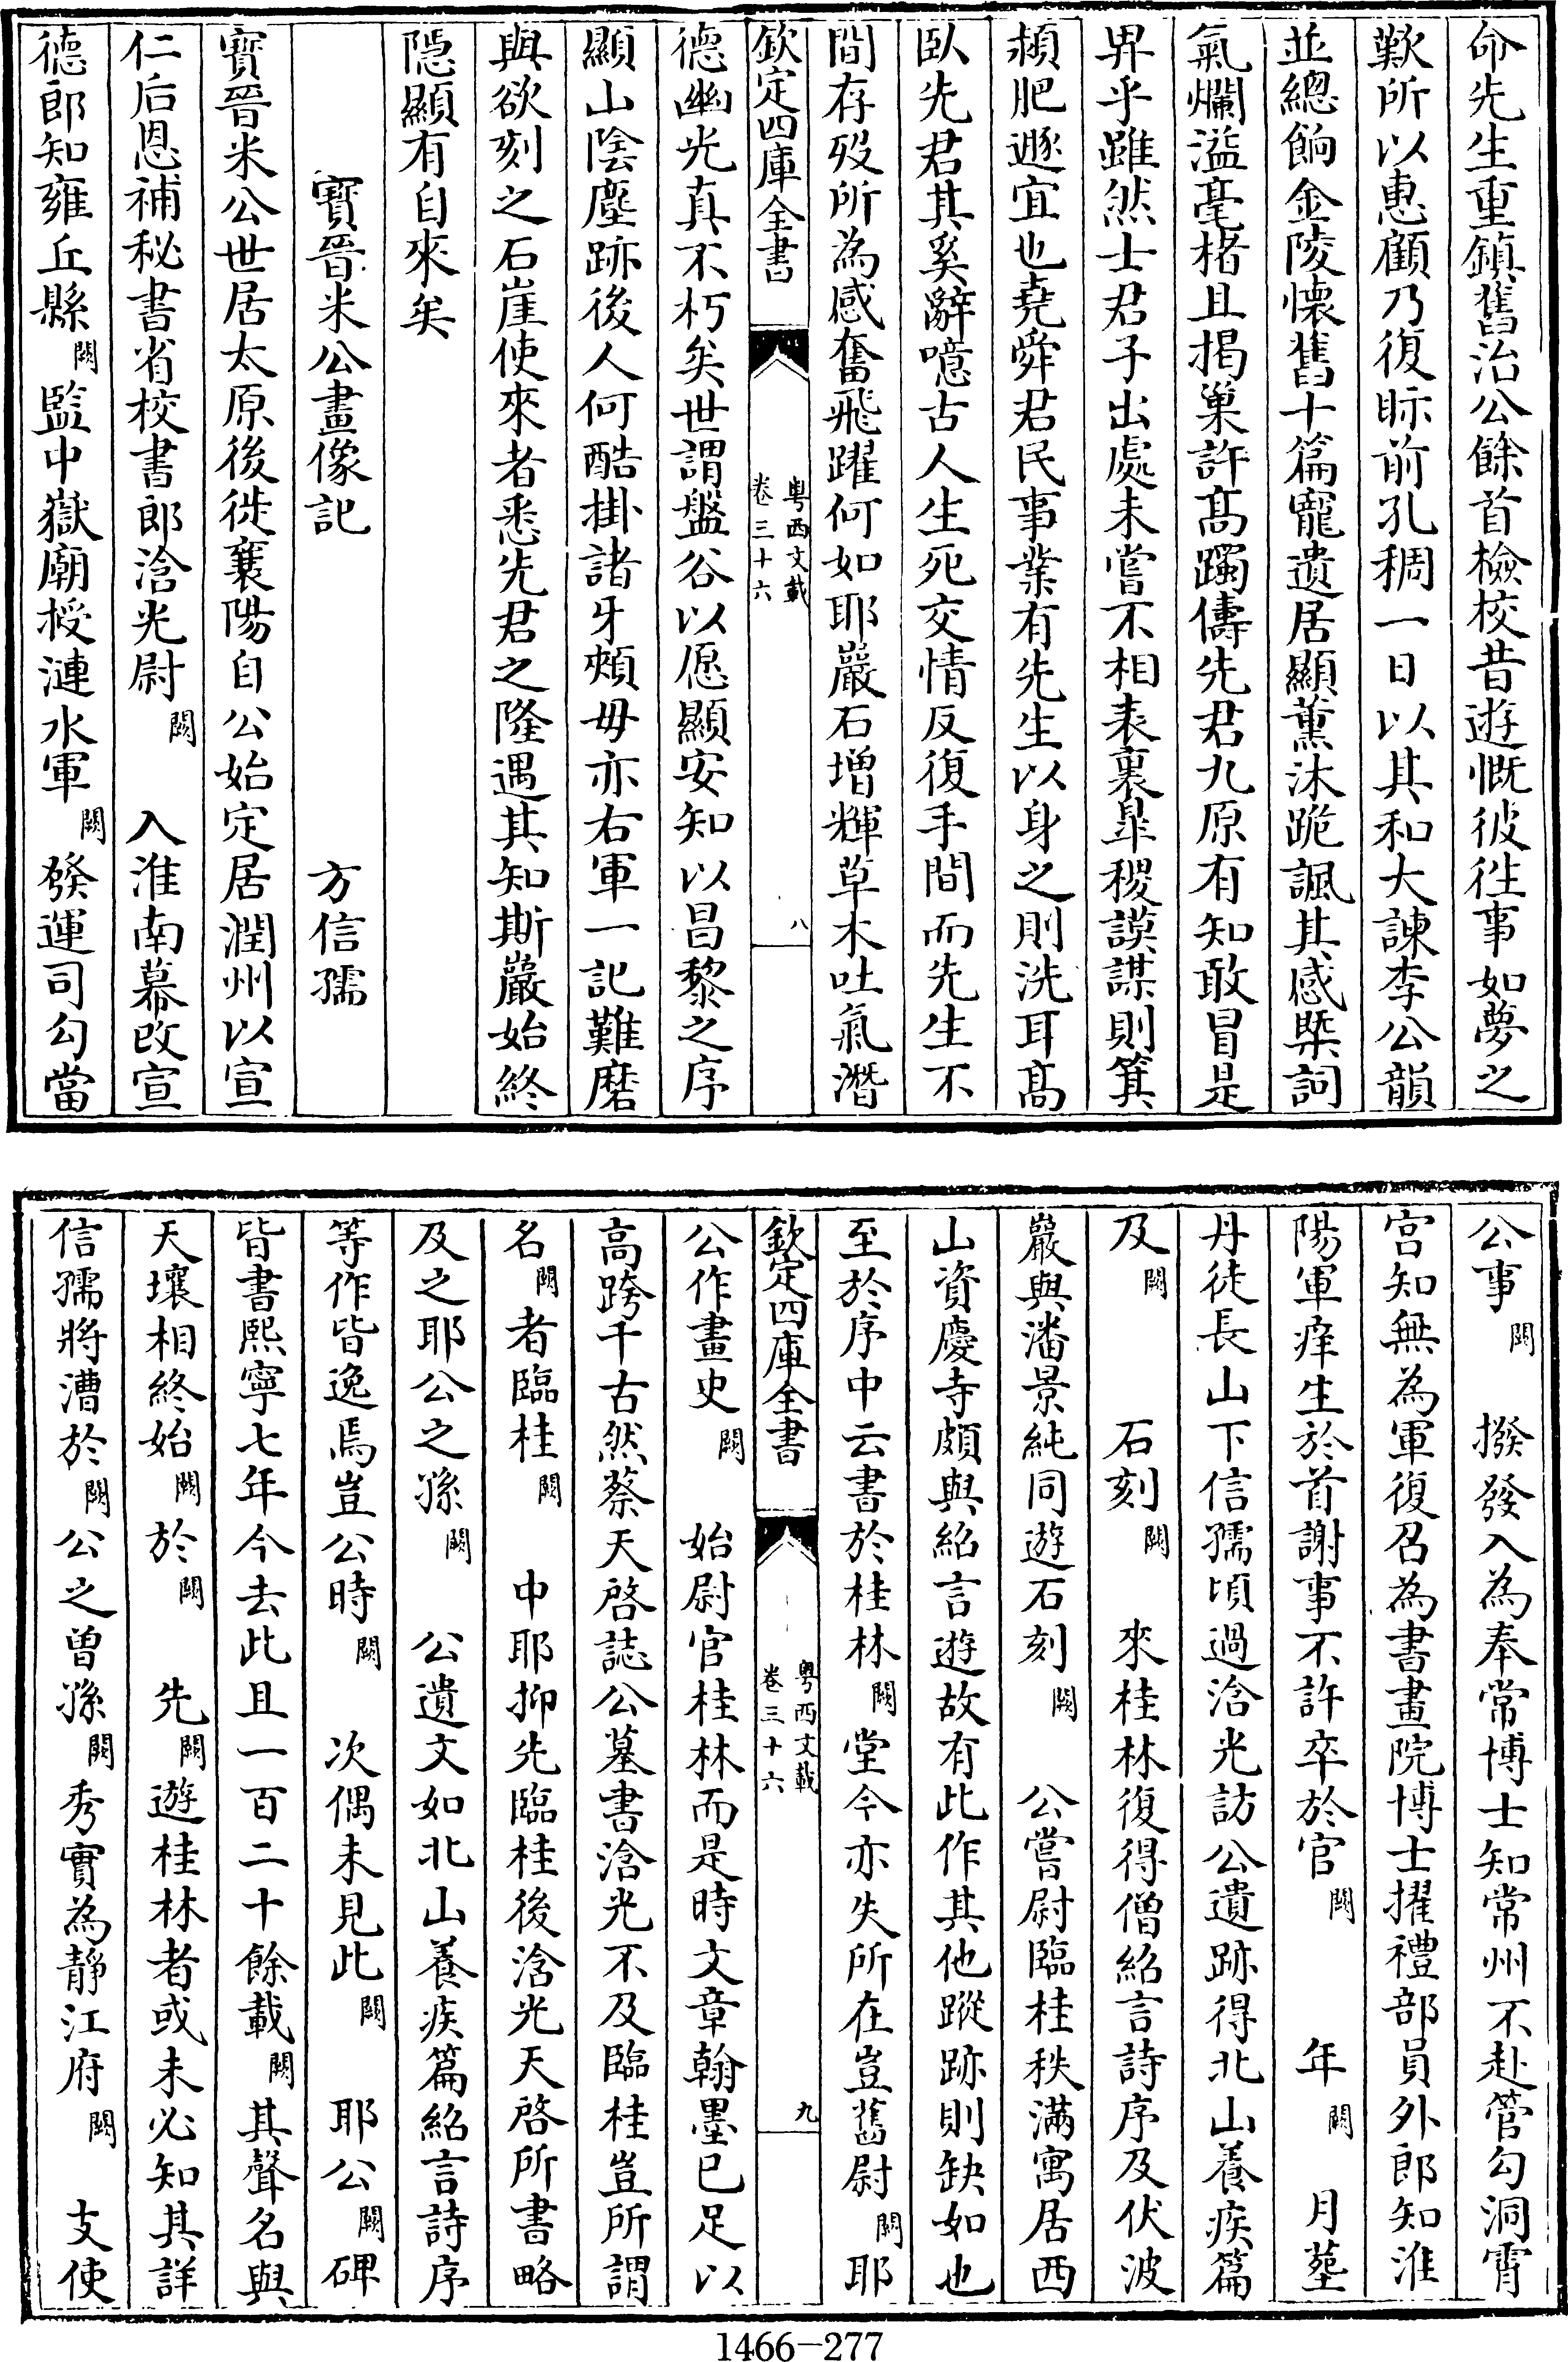 命先生重鎮舊治公餘首檢校昔遊慨彼往事如夢之
歎所以惠顧乃復眎前孔稠一日以其和大諫李公韻
並總餉金陵懷舊十篇寵遺居顯薰沐跪諷其感槩詞
氣爛溢毫楮且揭巢許髙躅儔先君九原有知敢冒是
畀乎雖然士君子出處未嘗不相表裏臯稷謨謀則箕
潁肥遯宜也堯舜君民事業有先生以身之則洗耳髙
臥先君其奚辭噫古人生死交情反復手間而先生不
間存歿所為感奮飛躍何如耶巖石增輝草木吐氣潛
欽定四庫全書
粵西文載
卷三十六
八
德幽光真不朽矣世謂盤谷以愿顯安知以昌黎之序
顯山陰塵跡後人何酷掛諸牙頰毋亦右軍一記難磨
與欲刻之石崖使來者悉先君之隆遇其知斯巖始終
隱顯有自來矣
寳晉米公畫像記
方信孺
寳晉米公世居太原後徙襄陽自公始定居潤州以宣
仁后恩補秘書省校書郎浛光尉闕
入淮南幕改宣
德郎知雍丘縣闕監中嶽廟授漣水軍闕發運司勾當
公事闕
撥發入為奉常博士知常州不赴管勾洞霄
宫知無為軍復召為書畫院博士擢禮部員外郎知淮
陽軍痒生於首謝事不許卒於官闕
年闕
月塟
丹徒長山下信孺頃過浛光訪公遺跡得北山養疾篇
及闕
石刻闕
來桂林復得僧紹言詩序及伏波
巖與潘景純同遊石刻闕
公嘗尉臨桂秩满寓居西
山資慶寺頗與紹言遊故有此作其他蹤跡則缺如也
至於序中云書於桂林闕堂今亦失所在豈舊尉闕耶
欽定四庫全書
粵西文載
卷三十六
九
公作畫史闕
始尉官桂林而是時文章翰墨已足以
高跨千古然蔡天啓誌公墓書浛光不及臨桂豈所謂
名闕者臨桂闕
中耶抑先臨桂後浛光天啓所書略
及之耶公之孫闕
公遺文如北山養疾篇紹言詩序
等作皆逸焉豈公時闕
次偶未見此闕
耶公闕碑
皆書熙寧七年今去此且一百二十餘載闕其聲名與
天壤相終始闕於闕
先闕遊桂林者或未必知其詳
信孺將漕於闕公之曾孫闕秀實為靜江府闕
支使
1466-277